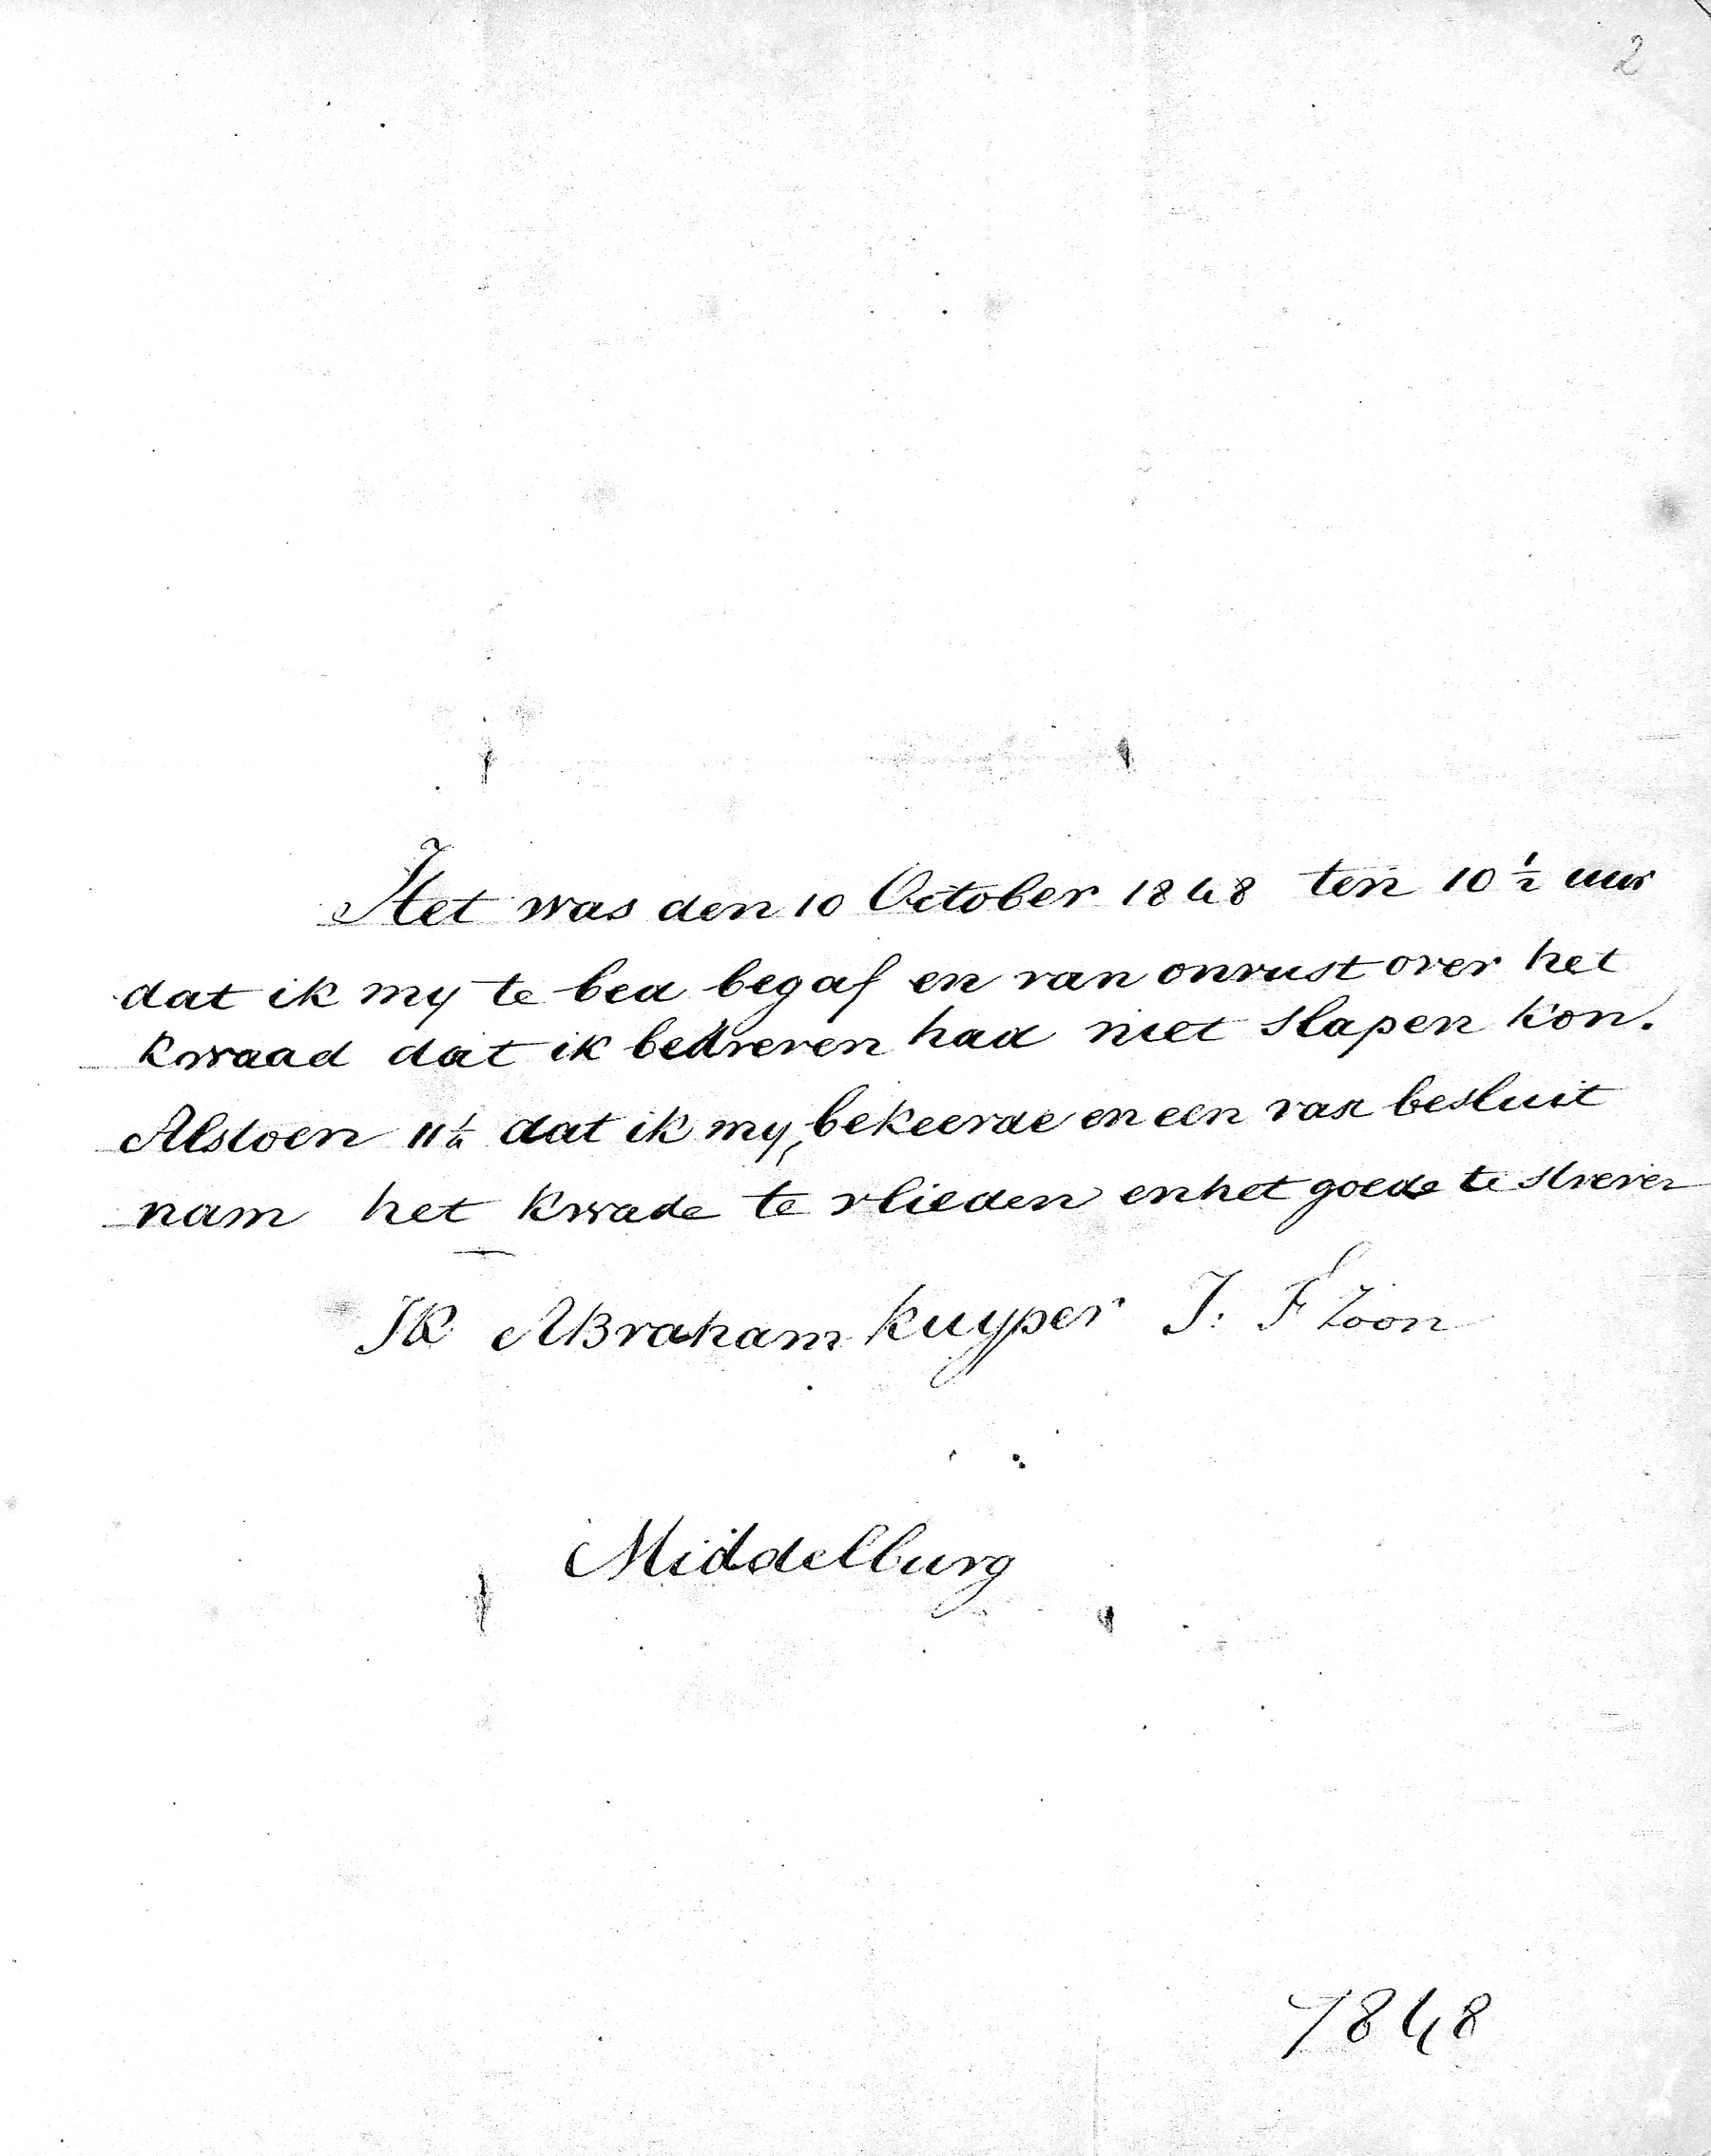 2
Het was den 10 October 1848 ten 10 ½ uur
dat ik my te bed begaf en van onrust over het
kwaad dat ik bedreven had niet slapen kon.
Alstoen 11¼ dat ik my bekeerde en een vast besluit
nam het kwade te vlieden en het goede te streven
Ik Abraham Kuyper J. F Zoon
Middelburg
1848